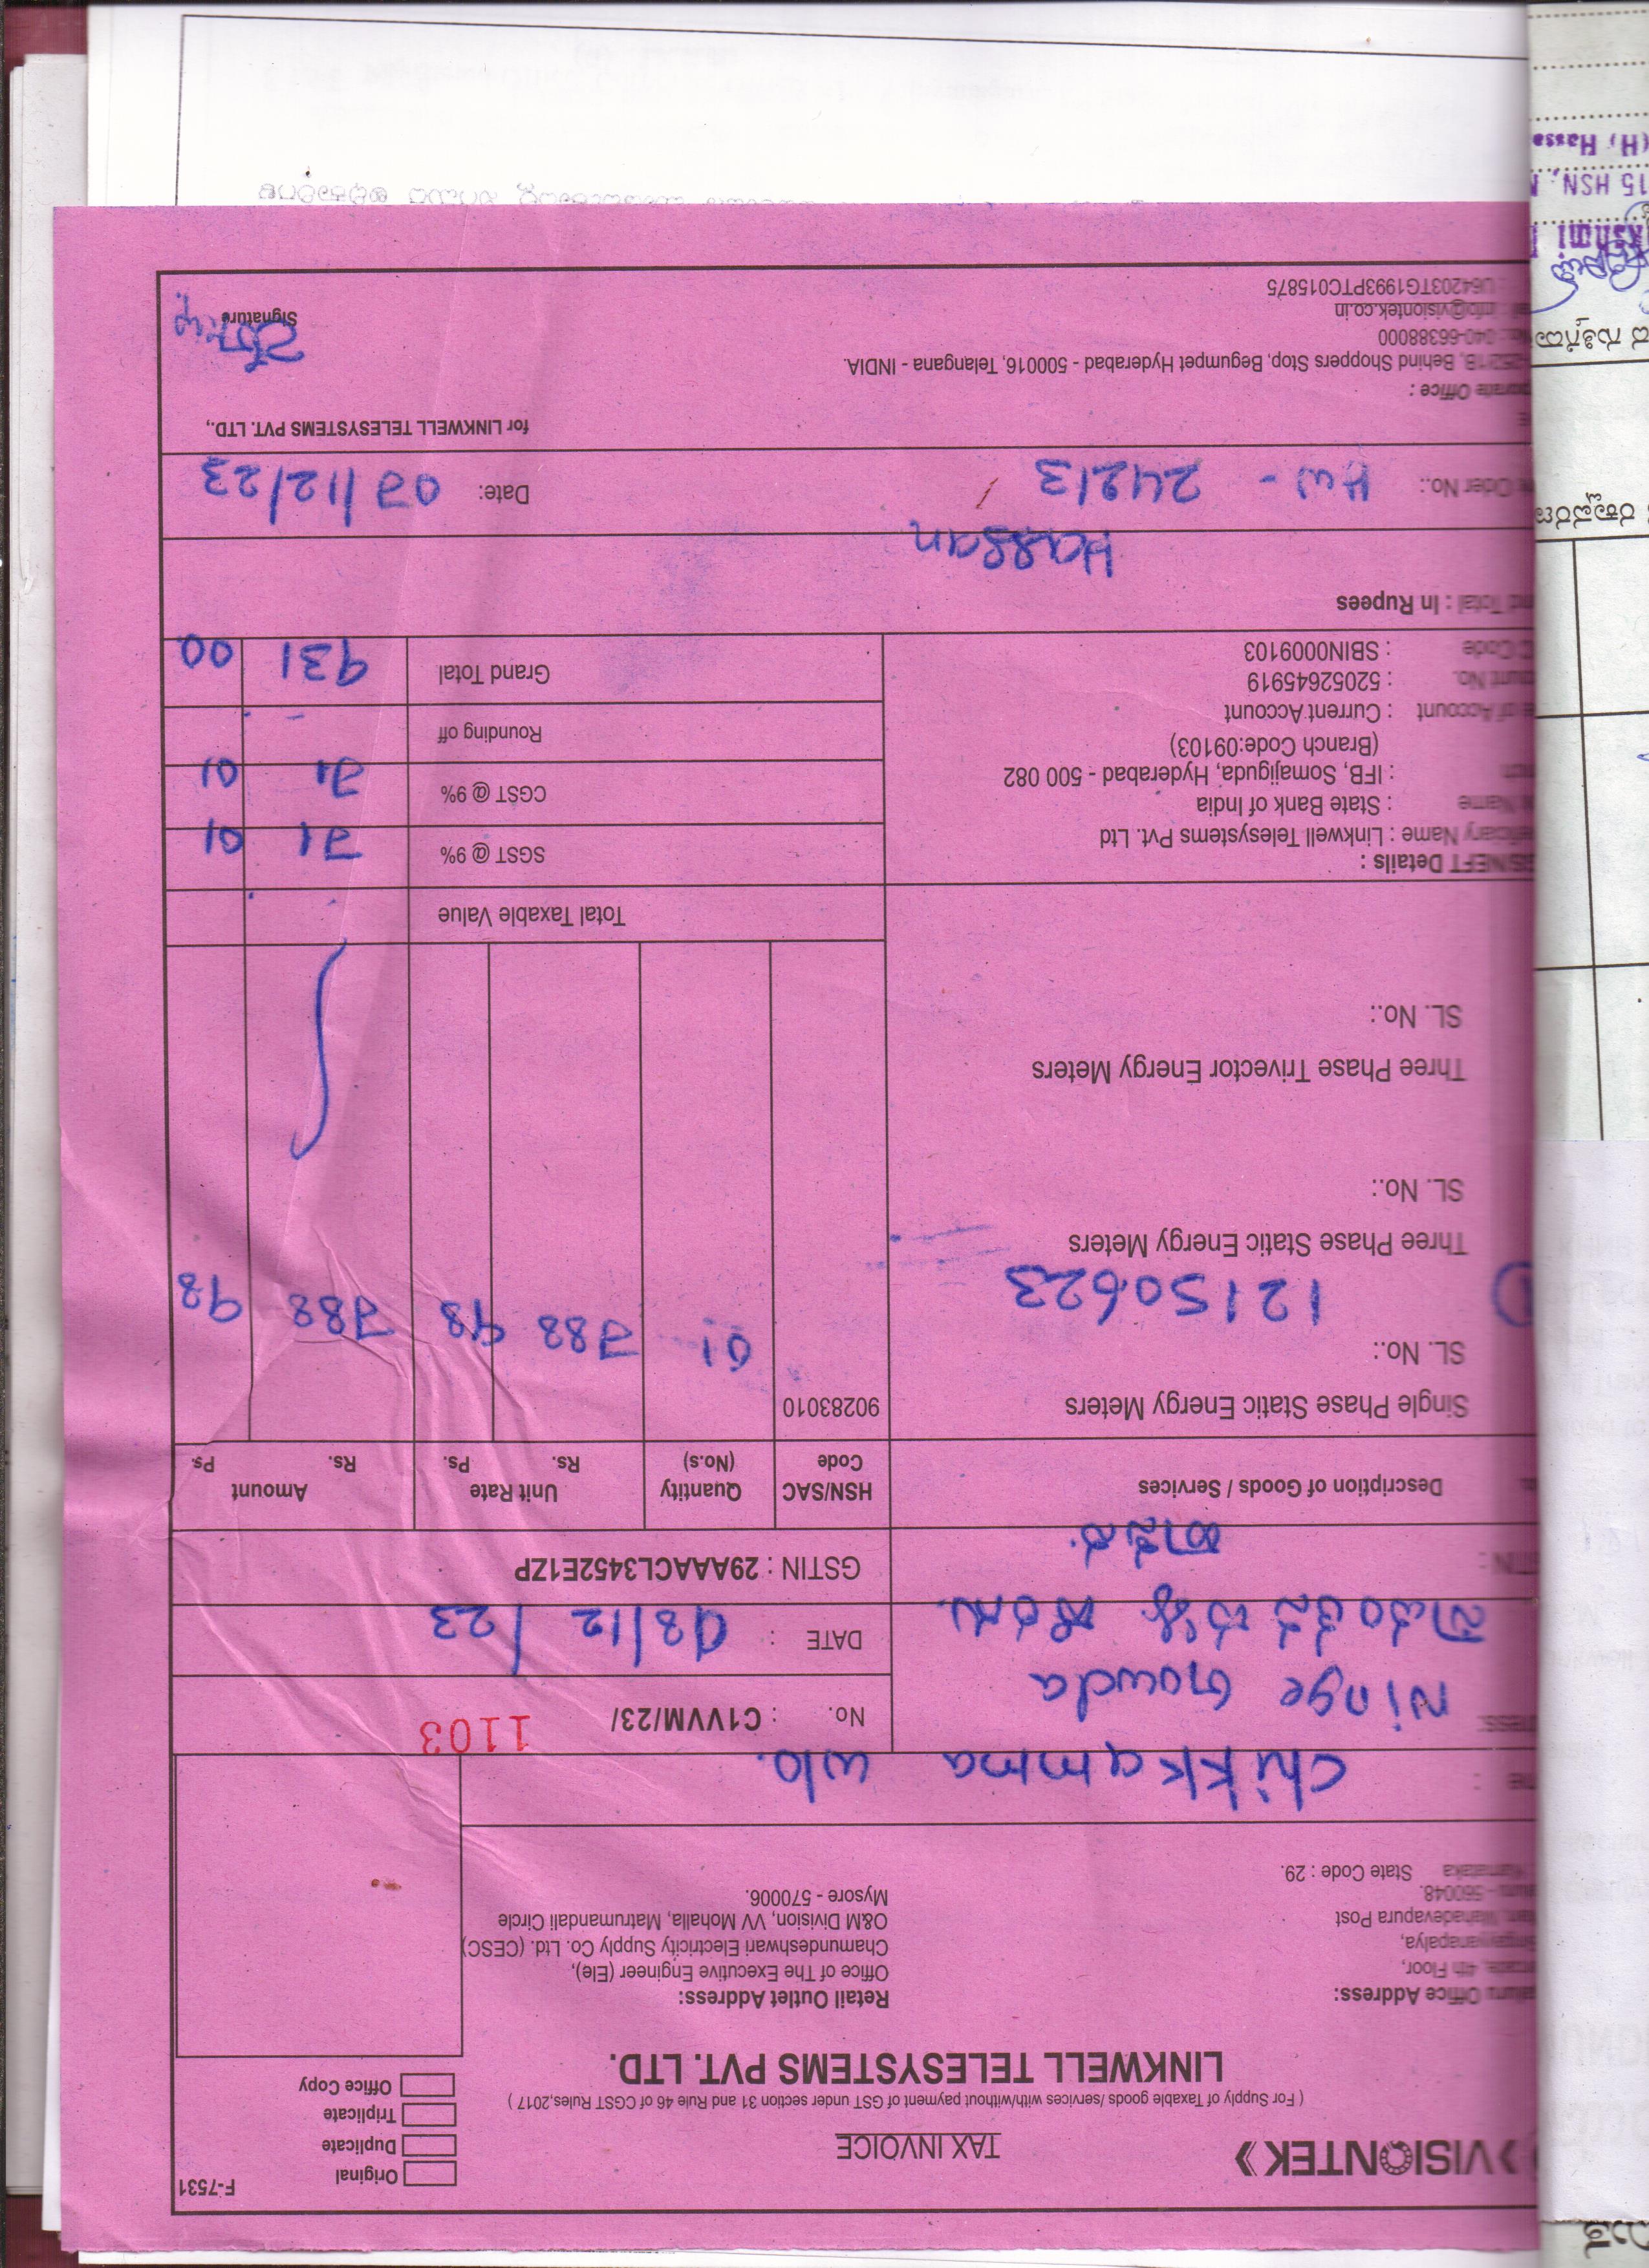 F-7531
Original
Duplicate
Triplicate
Office Copy
VISIONTEK
TAX INVOICE
( For Supply of Taxable goods /services with/without payment of GST under section 31 and Rule 46 of CGST Rules,2017 )
LINKWELL TELESYSTEMS PVT. LTD.
Office Address:
4th Floor,
Mahadevapura Post
- 560048.
State Code : 29.
Retail Outlet Address:
Office of The Executive Engineer (Ele),
Chamundeshwari Electricity Supply Co. Ltd. (CESC)
O&M Division, VV Mohalla, Matrumandali Circle
Mysore - 570006.
Chikkamma w/o.
Ninge Gowda
ಹಾಸನ
No. : C1VVM/23/ 1103
DATE : 08/12/23
GSTIN : 29AAACL3452E1ZP
Description of Goods / Services
HSN/SAC Code
Quantity (No.s)
Unit Rate Rs. Ps.
Amount Rs. Ps.
Single Phase Static Energy Meters 90283010
SL. No.:
12150623 01 788 98 788 98
Three Phase Static Energy Meters
SL. No.:
Three Phase Trivector Energy Meters
SL. No.:
Total Taxable Value
NEFT Details :
Name : Linkwell Telesystems Pvt. Ltd
Name : State Bank of India
: IFB, Somajiguda, Hyderabad - 500 082
(Branch Code:09103)
of Account : Current Account
No. : 52052645919
Code : SBIN0009103
SGST @ 9% 71 01
CGST @ 9% 71 01
Rounding off -
Grand Total 931 00
Total : In Rupees
Hassan
Oder No.: HW - 24213
Date: 07/12/23
for LINKWELL TELESYSTEMS PVT. LTD.,
Office :
Behind Shoppers Stop, Begumpet Hyderabad - 500016, Telangana - INDIA.
040-66388000
info@visiontek.co.in
U64203TG1993PTC015875
Signature